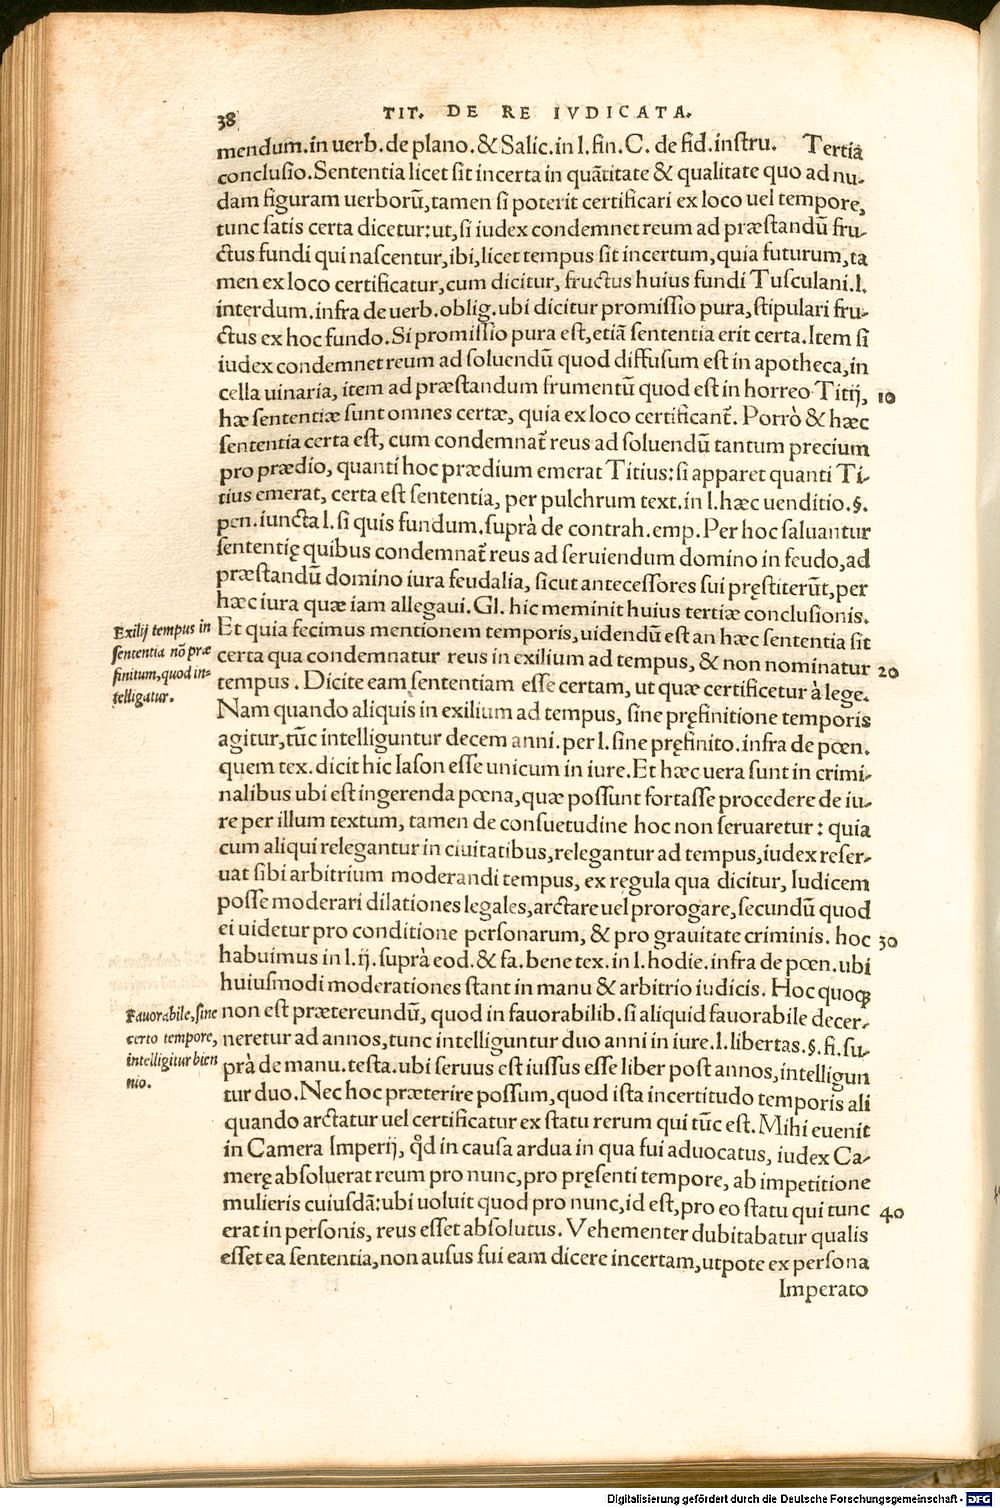 38
TIT. DE RE IVDICATA.
mendum.in uerb.de plano.& Salic.in l.fin.C. de fid.instru. Tertia
conclusio.Sententia licet sit incerta in quãtitate & qualitate quo ad nu-
dam figuram uerborũ,tamen si poterit certificari ex loco uel tempore,
tunc satis certa dicetur:ut,si iudex condemnet reum ad præstandũ fru-
ctus fundi qui nascentur,ibi,licet tempus sit incertum,quia futurum,ta
men ex loco certificatur,cum dicitur, fructus huius fundi Tusculani.l.
interdum.infra de uerb.oblig.ubi dicitur promissio pura,stipulari fru-
ctus ex hoc fundo.Si promissio pura est,etiã sententia erit certa.Item si
iudex condemnet reum ad soluendũ quod diffusum est in apotheca,in
cella uinaria, item ad præstandum frumentũ quod est in horreo Titij,
10
hæ sententiæ sunt omnes certæ, quia ex loco certificant̃. Porrò & hæc
sententia certa est, cum condemnat̃ reus ad soluendũ tantum precium
pro prædio, quanti hoc prædium emerat Titius:si apparet quanti Ti-
tius emerat, certa est sententia, per pulchrum text.in l.hæc uenditio.§.
pen.iuncta l.si quis fundum.suprà de contrah.emp.Per hoc saluantur
sententię quibus condemnat̃ reus ad seruiendum domino in feudo,ad
præstandũ domino iura feudalia, sicut antecessores sui pręstiterũt,per
hæc iura quæ iam allegaui.Gl.hic meminit huius tertiæ conclusionis.
Exilij tempus in
sententia nõ præ
finitum,quod in-
telligatur.
Et quia fecimus mentionem temporis,uidendũ est an hæc sententia sit
certa qua condemnatur reus in exilium ad tempus, & non nominatur
20
tempus. Dicite eam sententiam esse certam, ut quæ certificetur à lege.
Nam quando aliquis in exilium ad tempus, sine pręfinitione temporis
agitur,tũc intelliguntur decem anni.per l.sine pręfinito.infra de pœn.
quem tex.dicit hic Iason esse unicum in iure.Et hæc uera sunt in crimi-
nalibus ubi est ingerenda pœna,quæ possunt fortasse procedere de iu-
re per illum textum, tamen de consuetudine hoc non seruaretur: quia
cum aliqui relegantur in ciuitatibus,relegantur ad tempus,iudex reser-
uat sibi arbitrium moderandi tempus, ex regula qua dicitur, Iudicem
posse moderari dilationes legales,arctare uel prorogare,secundũ quod
ei uidetur pro conditione personarum, & pro grauitate criminis. hoc
30
habuimus in l.ij.suprà eod.& fa.bene tex.in l.hodie.infra de pœn.ubi
huiusmodi moderationes stant in manu & arbitrio iudicis. Hoc quoqꝫ
Fauorabile,sine
certo tempore,
intelligitur bien
nio.
non est prætereundũ, quod in fauorabilib.si aliquid fauorabile decer-
neretur ad annos,tunc intelliguntur duo anni in iure.l.libertas.§.fi.su-
prà de manu.testa.ubi seruus est iussus esse liber post annos,intelligun
tur duo.Nec hoc præterire possum,quod ista incertitudo temporis ali
quando arctatur uel certificatur ex statu rerum qui tũc est.Mihi euenit
in Camera Imperij, qd̃ in causa ardua in qua fui aduocatus, iudex Ca-
merę absoluerat reum pro nunc,pro pręsenti tempore, ab impetitione
mulieris cuiusdã:ubi uoluit quod pro nunc,id est,pro eo statu qui tunc
40
erat in personis, reus esset absolutus. Vehementer dubitabatur qualis
esset ea sententia,non ausus fui eam dicere incertam,utpote ex persona
Imperato
Digitalisierung gefördert durch die Deutsche Forschungsgemeinschaft - DFG